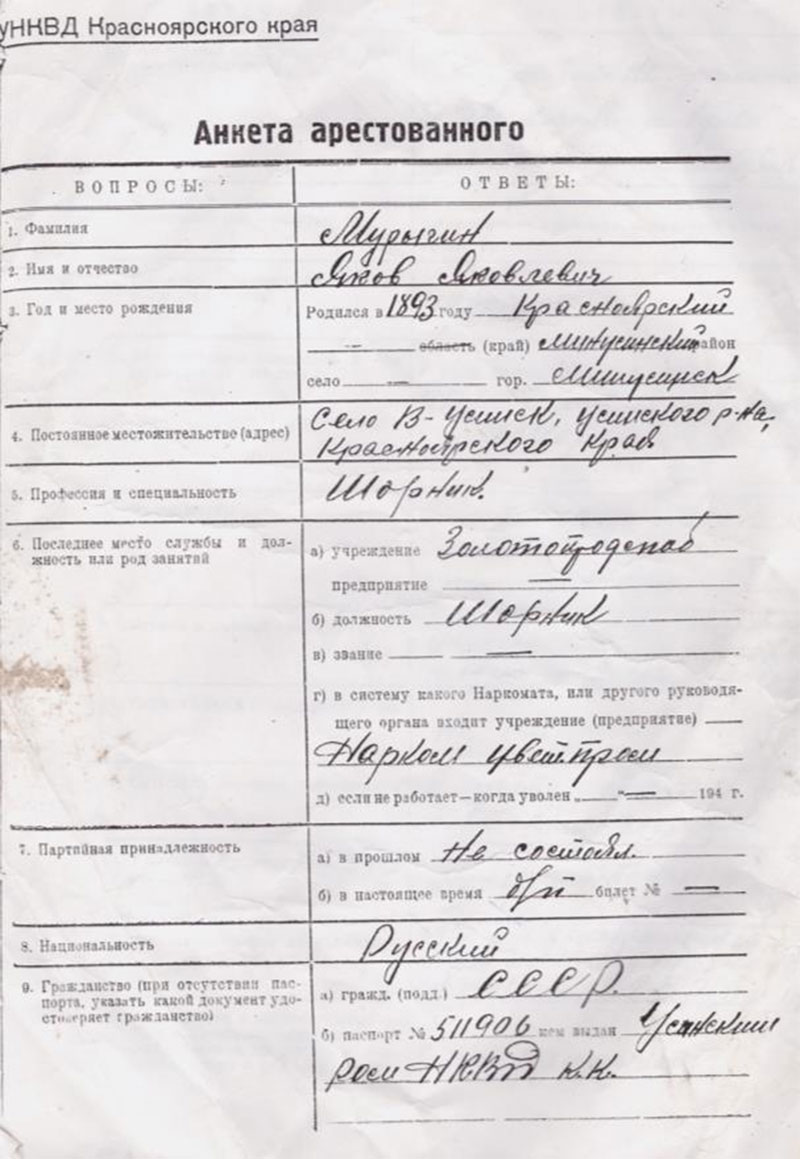 УНКВД Красноярского края
Анкета арестованного
ВОПРОСЫ: ОТВЕТЫ:
1. Фамилия Мурыгин
2. Имя и отчество Яков Яковлевич
3. Год и место рождения Родился в 1893 году Красноярский
— область (край) Минусинский район
село — гор. Минусинск
4. Постоянное местожительство (адрес) Село В-Усинск, Усинского р-на,
Красноярского края
5. Профессия и специальность Шорник.
6. Последнее место службы и дол-
жность или род занятий
а) учреждение Золотопродснаб
предприятие —
б) должность Шорник
в) звание —
г) в систему какого Наркомата, или другого руководя-
щего органа входит учреждение (предприятие)
Нарком цветпром
д) если не работает—когда уволен „ “ — 194 г.
7. Партийная принадлежность а) в прошлом Не состоял.
б) в настоящее время б/п билет № —
8. Национальность Русский
9. Гражданство (при отсутствии пас-
порта, указать какой документ удо-
стоверяет гражданство)
а) гражд. (подд.) СССР.
б) паспорт № 511906 кем выдан Усинским
РОМ НКВД К.К.